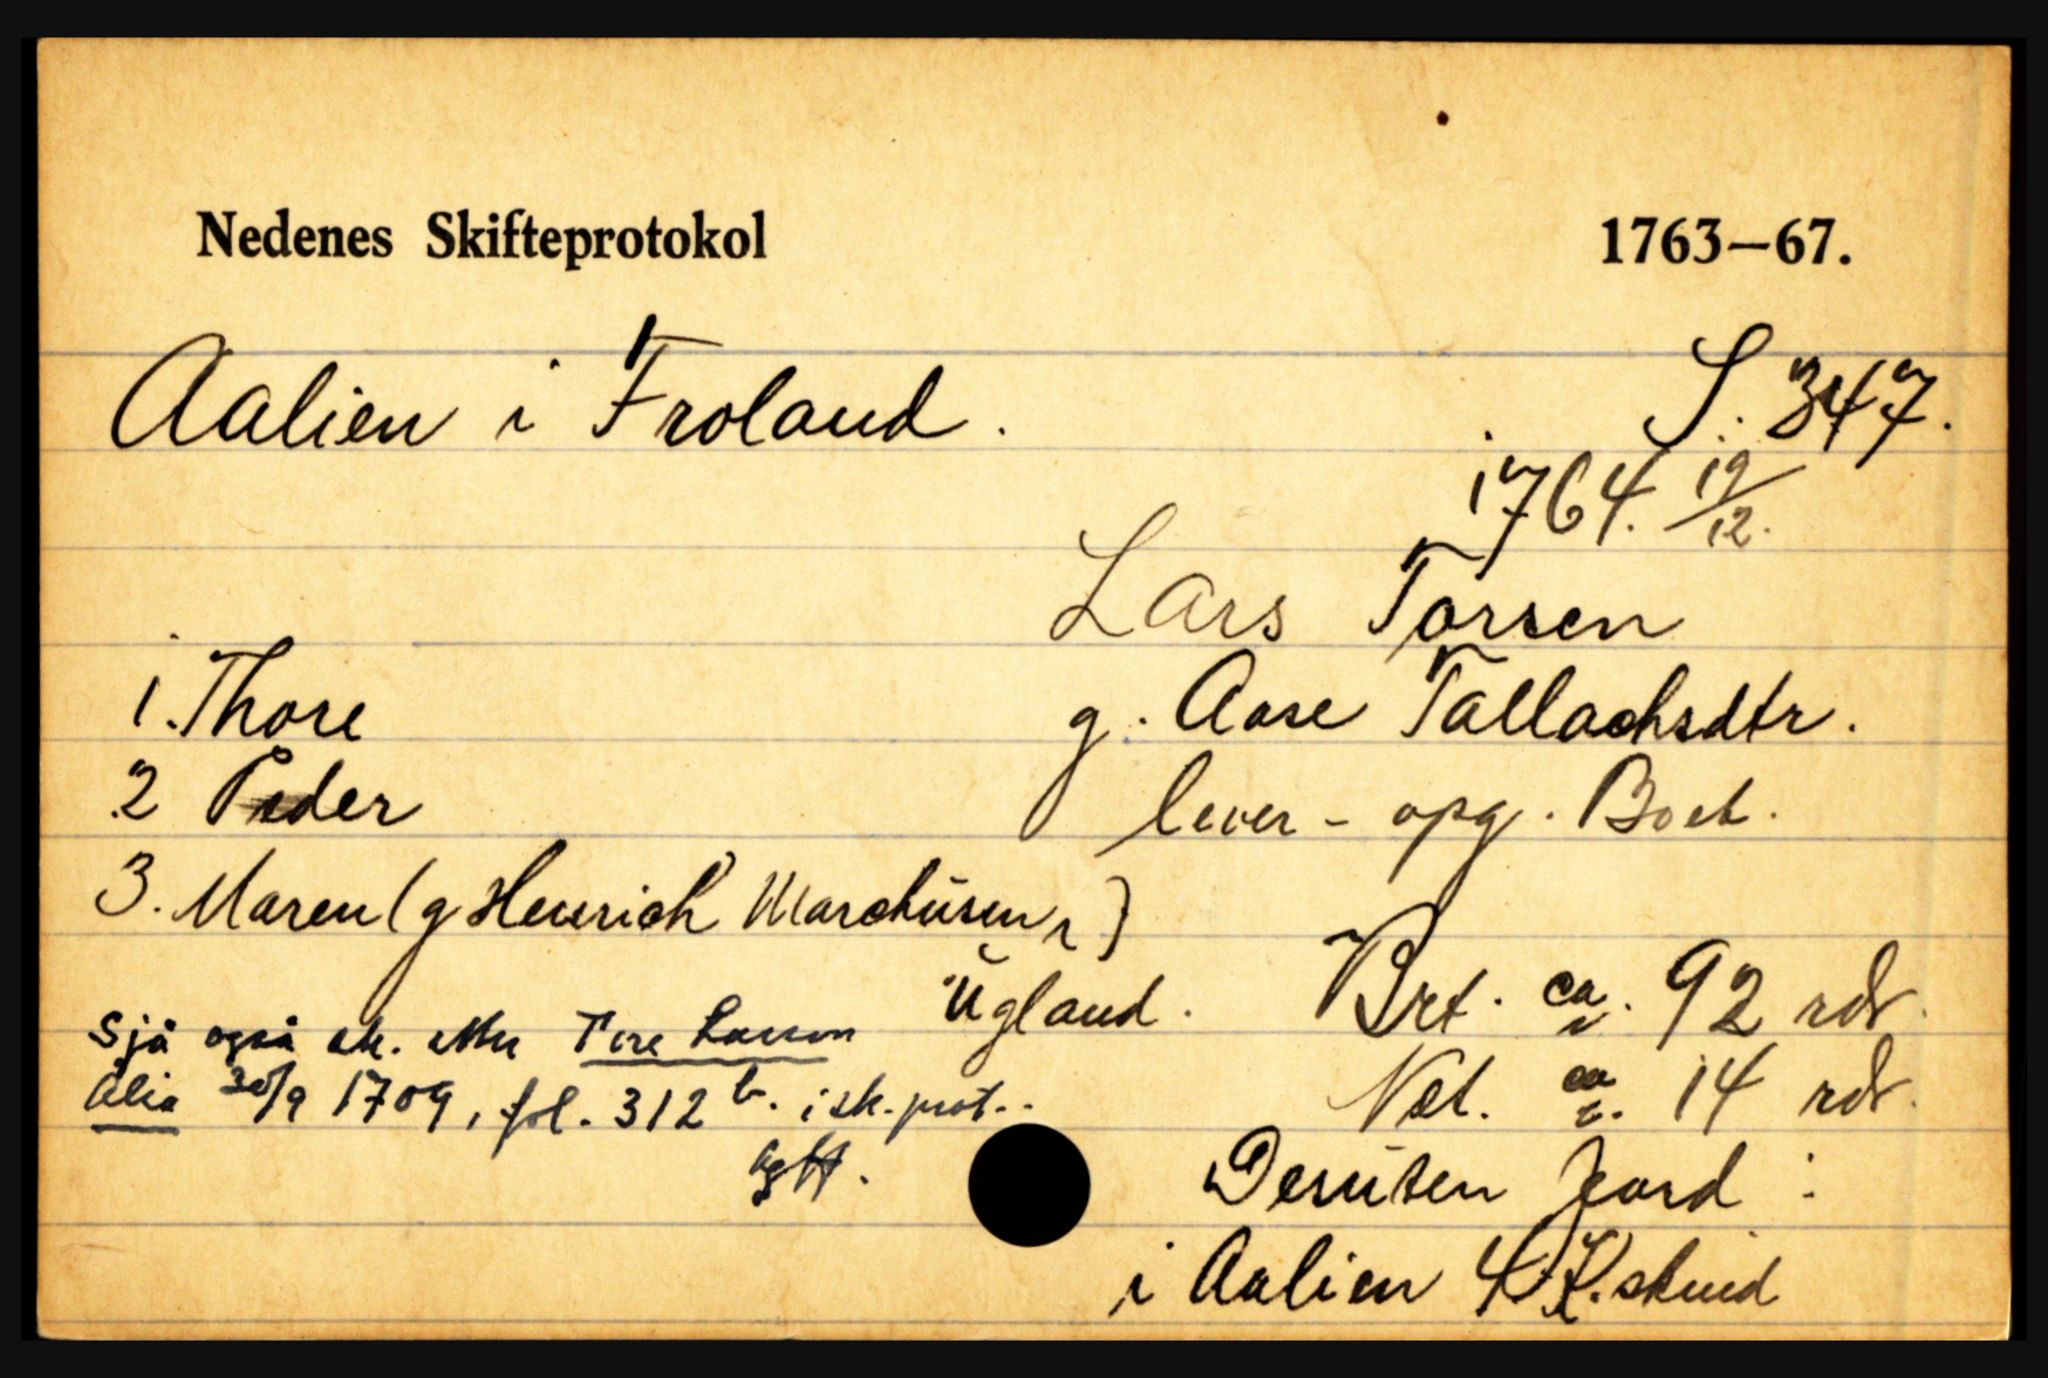 Nedenes Skifteprotokol 1763—67.
Aalien i Froland. S. 347.
1764. 19/12.
Lars Torsen
1. Thore g. Aase Tallachsdtr.
2 Peder lever - opg. Boet.
3. Maren (g Henrich Marchüsen, )
Ügland. Brt. ca. 92 rdr.
Sjå også sk. etter Tore Larsen
Net. ca. 14 rdr.
Ålia 30/9 1709, fol. 312 b. i sk. prot..
Desüten Jord :
i Aalien 4 K. skind